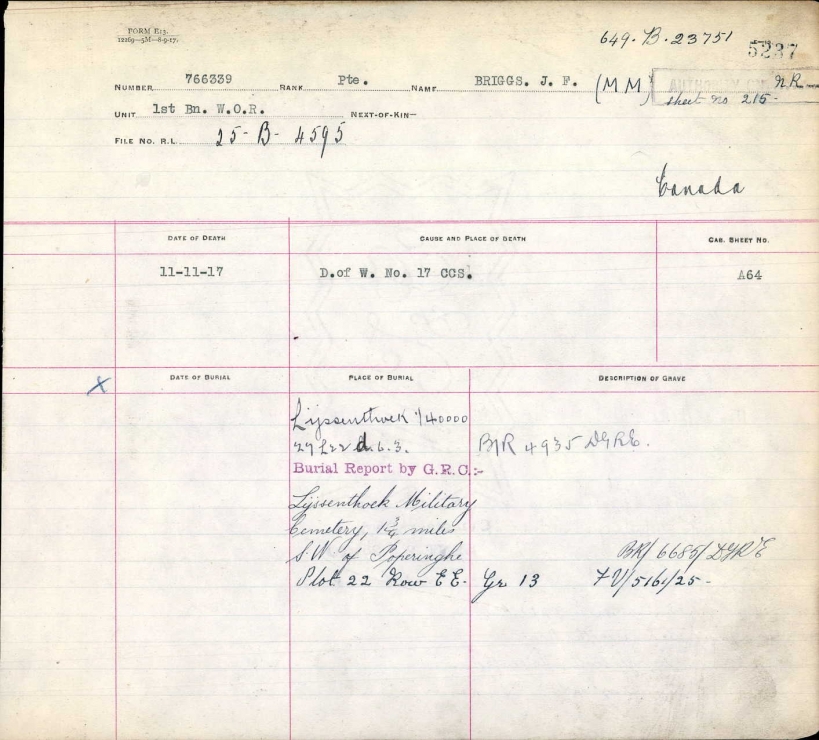 FORM E13.
12269—53M—8-9-17.
649. B. 23751
5237
NUMBER 766339 RANK Pte. NAME BRIGGS. J. F. (MM) NR
sheet no 215-
UNIT 1st Bn. W.O.R. NEXT-OF-KIN—
FILE NO. R.L. 25-B-4595
Canada
DATE OF DEATH CAUSE AND PLACE OF DEATH CAB. SHEET NO.
11-11-17 D.of W. No. 17 CCS. A64
X DATE OF BURIAL PLACE OF BURIAL DESCRIPTION OF GRAVE
Lijssenthoek 1/40000
27 L22 d. 6.3. B/R 4935 DGRE.
Burial Report by G.R.C.:-
Lijssenthoek Military
Cemetery, 1 3/4 miles
S.W of Poperinghe BR/ 6685/ DGRE
Plot 22 Row EE. Gr 13